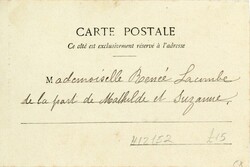 CARTE POSTALE
Ce côté est exclusivement réservé à l'adresse
Mademoiselle Renée Lacombe
de la part de Mathilde et Suzanne.
£15